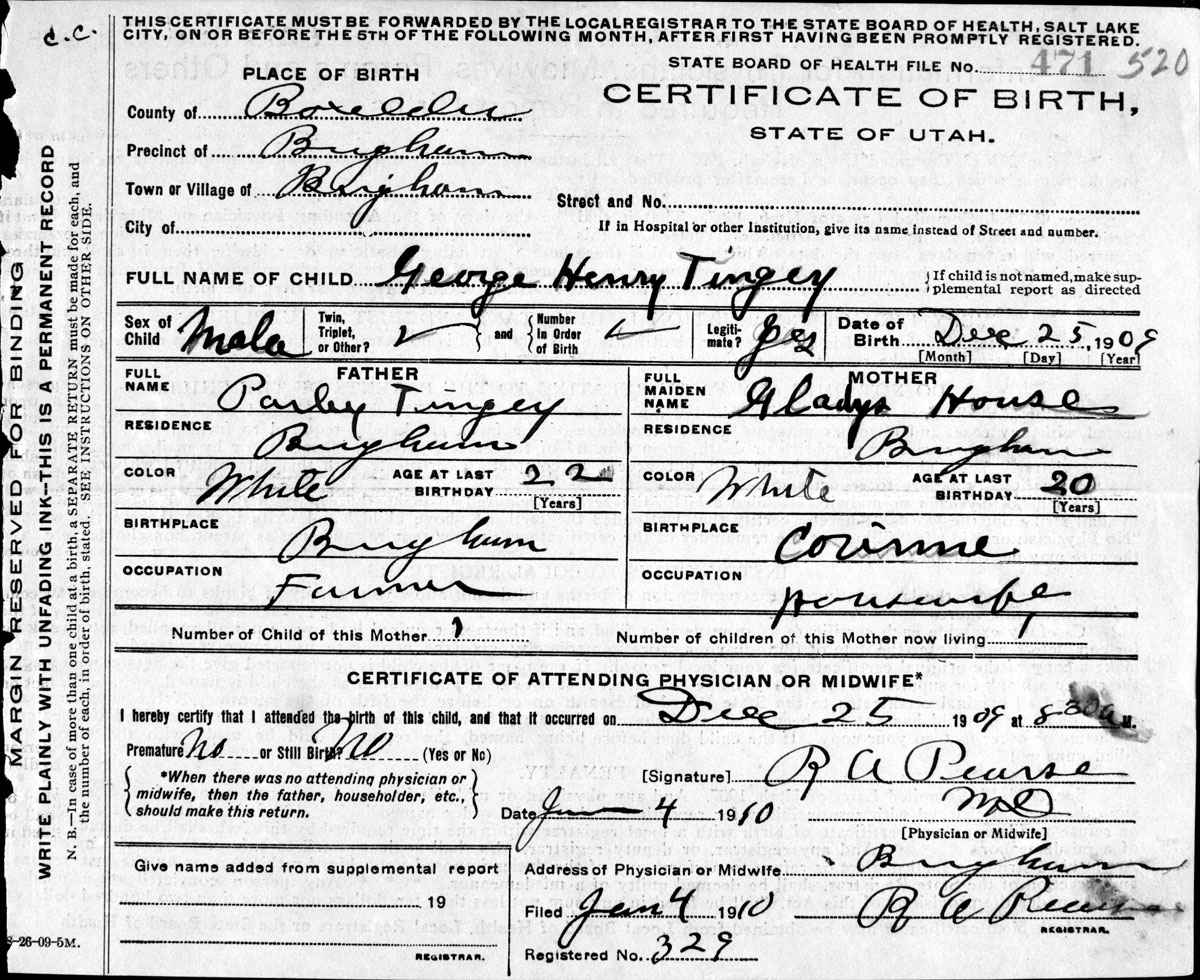 c.c.
THIS CERTIFICATE MUST BE FORWARDED BY THE LOCAL REGISTRAR TO THE STATE BOARD OF HEALTH, SALT LAKE
CITY, ON OR BEFORE THE 5TH OF THE FOLLOWING MONTH, AFTER FIRST HAVING BEEN PROMPTLY REGISTERED.
STATE BOARD OF HEALTH FILE No. 471 520
PLACE OF BIRTH
CERTIFICATE OF BIRTH,
STATE OF UTAH.
County of Boxelder
Precinct of Brigham
Town or Village of Brigham
Street and No.
City of
If in Hospital or other Institution, give its name instead of Street and number.
FULL NAME OF CHILD George Henry Tingey {If child is not named, make sup-
plemental report as directed
Sex of Child Male Twin, Triplet, or Other? and Number in Order of Birth Legiti-mate? yes Date of Birth Dec 25, 1909
[Month] [Day] [Year]
FATHER MOTHER
FULL NAME Parley Tingey FULL MAIDEN NAME Gladys House
RESIDENCE Brigham RESIDENCE Brigham
COLOR White AGE AT LAST BIRTHDAY 22 [Years] COLOR White AGE AT LAST BIRTHDAY 20 [Years]
BIRTHPLACE Brigham BIRTHPLACE Corinne
OCCUPATION Farmer OCCUPATION Housewife
Number of Child of this Mother 1 Number of children of this Mother now living 1
CERTIFICATE OF ATTENDING PHYSICIAN OR MIDWIFE*
I hereby certify that I attended the birth of this child, and that it occurred on Dec 25 1909 at 830a M.
Premature No or Still Birth? No (Yes or No)
*When there was no attending physician or
midwife, then the father, householder, etc.,
should make this return.
[Signature] R A Pearse
MD
Date Jan 4 1910
[Physician or Midwife]
Give name added from supplemental report
Address of Physician or Midwife Brigham
19
Filed Jan 4 1910 R A Pearse
REGISTRAR.
REGISTRAR.
Registered No. 329
8-26-09-5M.
MARGIN RESERVED FOR BINDING
WRITE PLAINLY WITH UNFADING INK—THIS IS A PERMANENT RECORD
N. B.—In case of more than one child at a birth, a SEPARATE RETURN must be made for each, and
the number of each, in order of birth, stated. SEE INSTRUCTIONS ON OTHER SIDE.